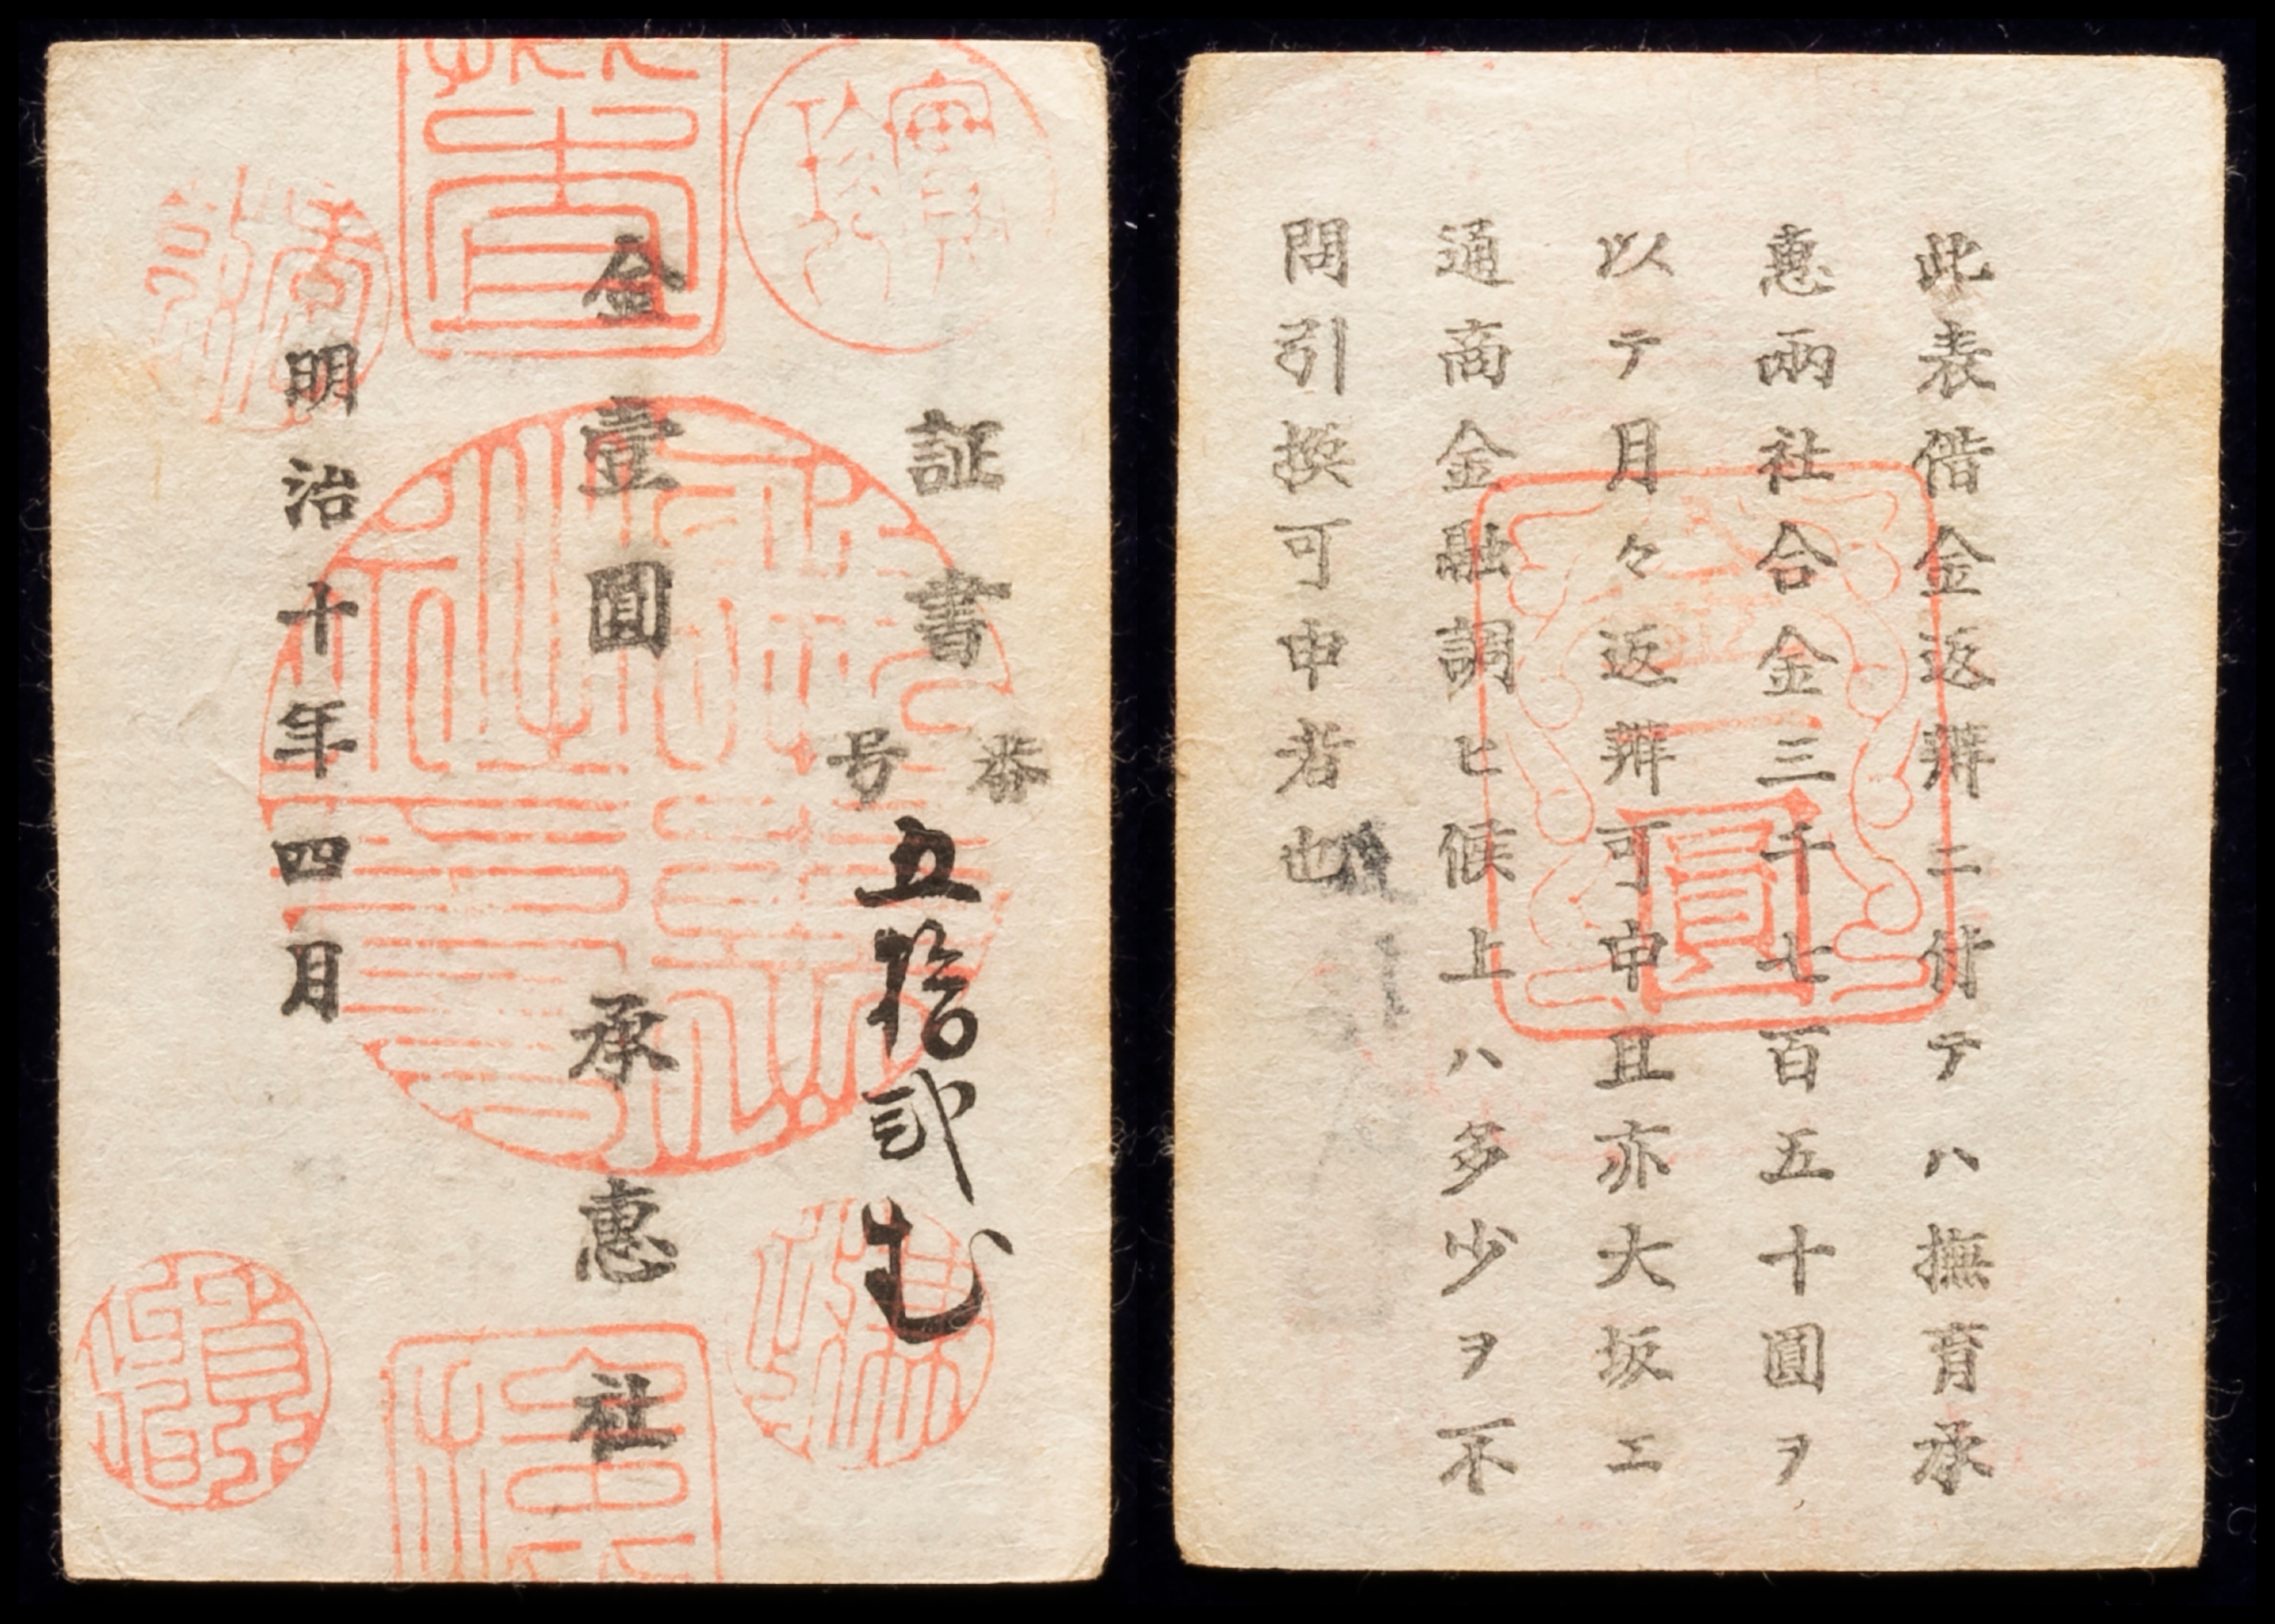 証書
番号
五拾弐
金壹圓
承惠社
明治十年四月
此表借金返辨ニ付テハ撫育承
惠兩社合金三千七百五十圓ヲ
以テ月々返辨可申且亦大坂エ
通商金融調ヒ候上ハ多少ヲ不
問引換可申者也
圓